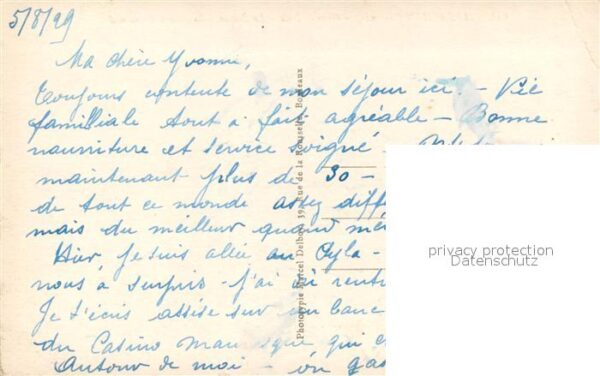 5/8/49
Ma chère Yvonne,
Toujours contente de mon séjour ici. - Vie
familiale tout à fait agréable - Bonne
nourriture et service soigné -
maintenant plus de 30 -
de tout ce monde assez diff
mais du meilleur quand mê
Hier je suis allée au Pyla -
nous a surpris - j'ai dû rentr
Je t'écris assise sur un banc
du Casino Mauresque qui e
Autour de moi - on gas
Phototypie Marcel Delboy, 39, Rue de la Rousselle, Bordeaux
privacy protection
Datenschutz